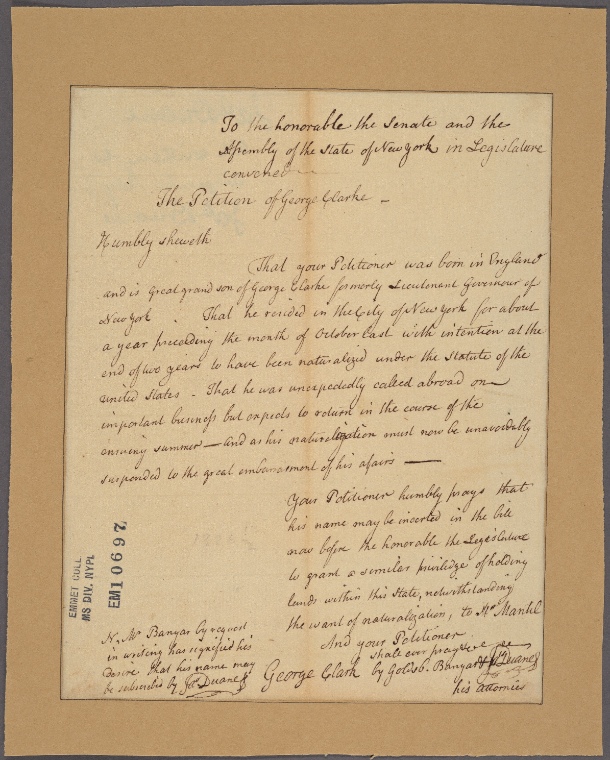 To the honorable the Senate and the
Assembly of the State of New york in Legislature
convened
The Petition of George Clarke -
Humbly sheweth
That your Petitioner was born in England
and is great grand son of George Clarke formerly Lieutenant Governour of
New York . That he resided in the City of New york for about
a year preceding the month of October last with intention at the
end of two years to have been naturalized under the Statute of the
united States - That he was unexpectedly called abroad on
important business but expects to return in the course of the
ensuing summer — and as his naturalization must now be unavoidably
suspended to the great embarrasment of his afairs —
Your Petitioner humbly prays that
his name may be inserted in the bill
now before the honorable the Legislature
to grant a similar priviledge of holding
lands within this State, notwithstanding
the want of naturalization, to Mr Mantel
And your Petitioner
shall ever pray
George Clark by Goldsb. Banyar & Js Duane
his attornies
N. Mr Banyar by request
in writing has signified his
desire that his name may
be subscribed by Js Duane
EMMET COLL.
MS DIV. NYPL
EM10697